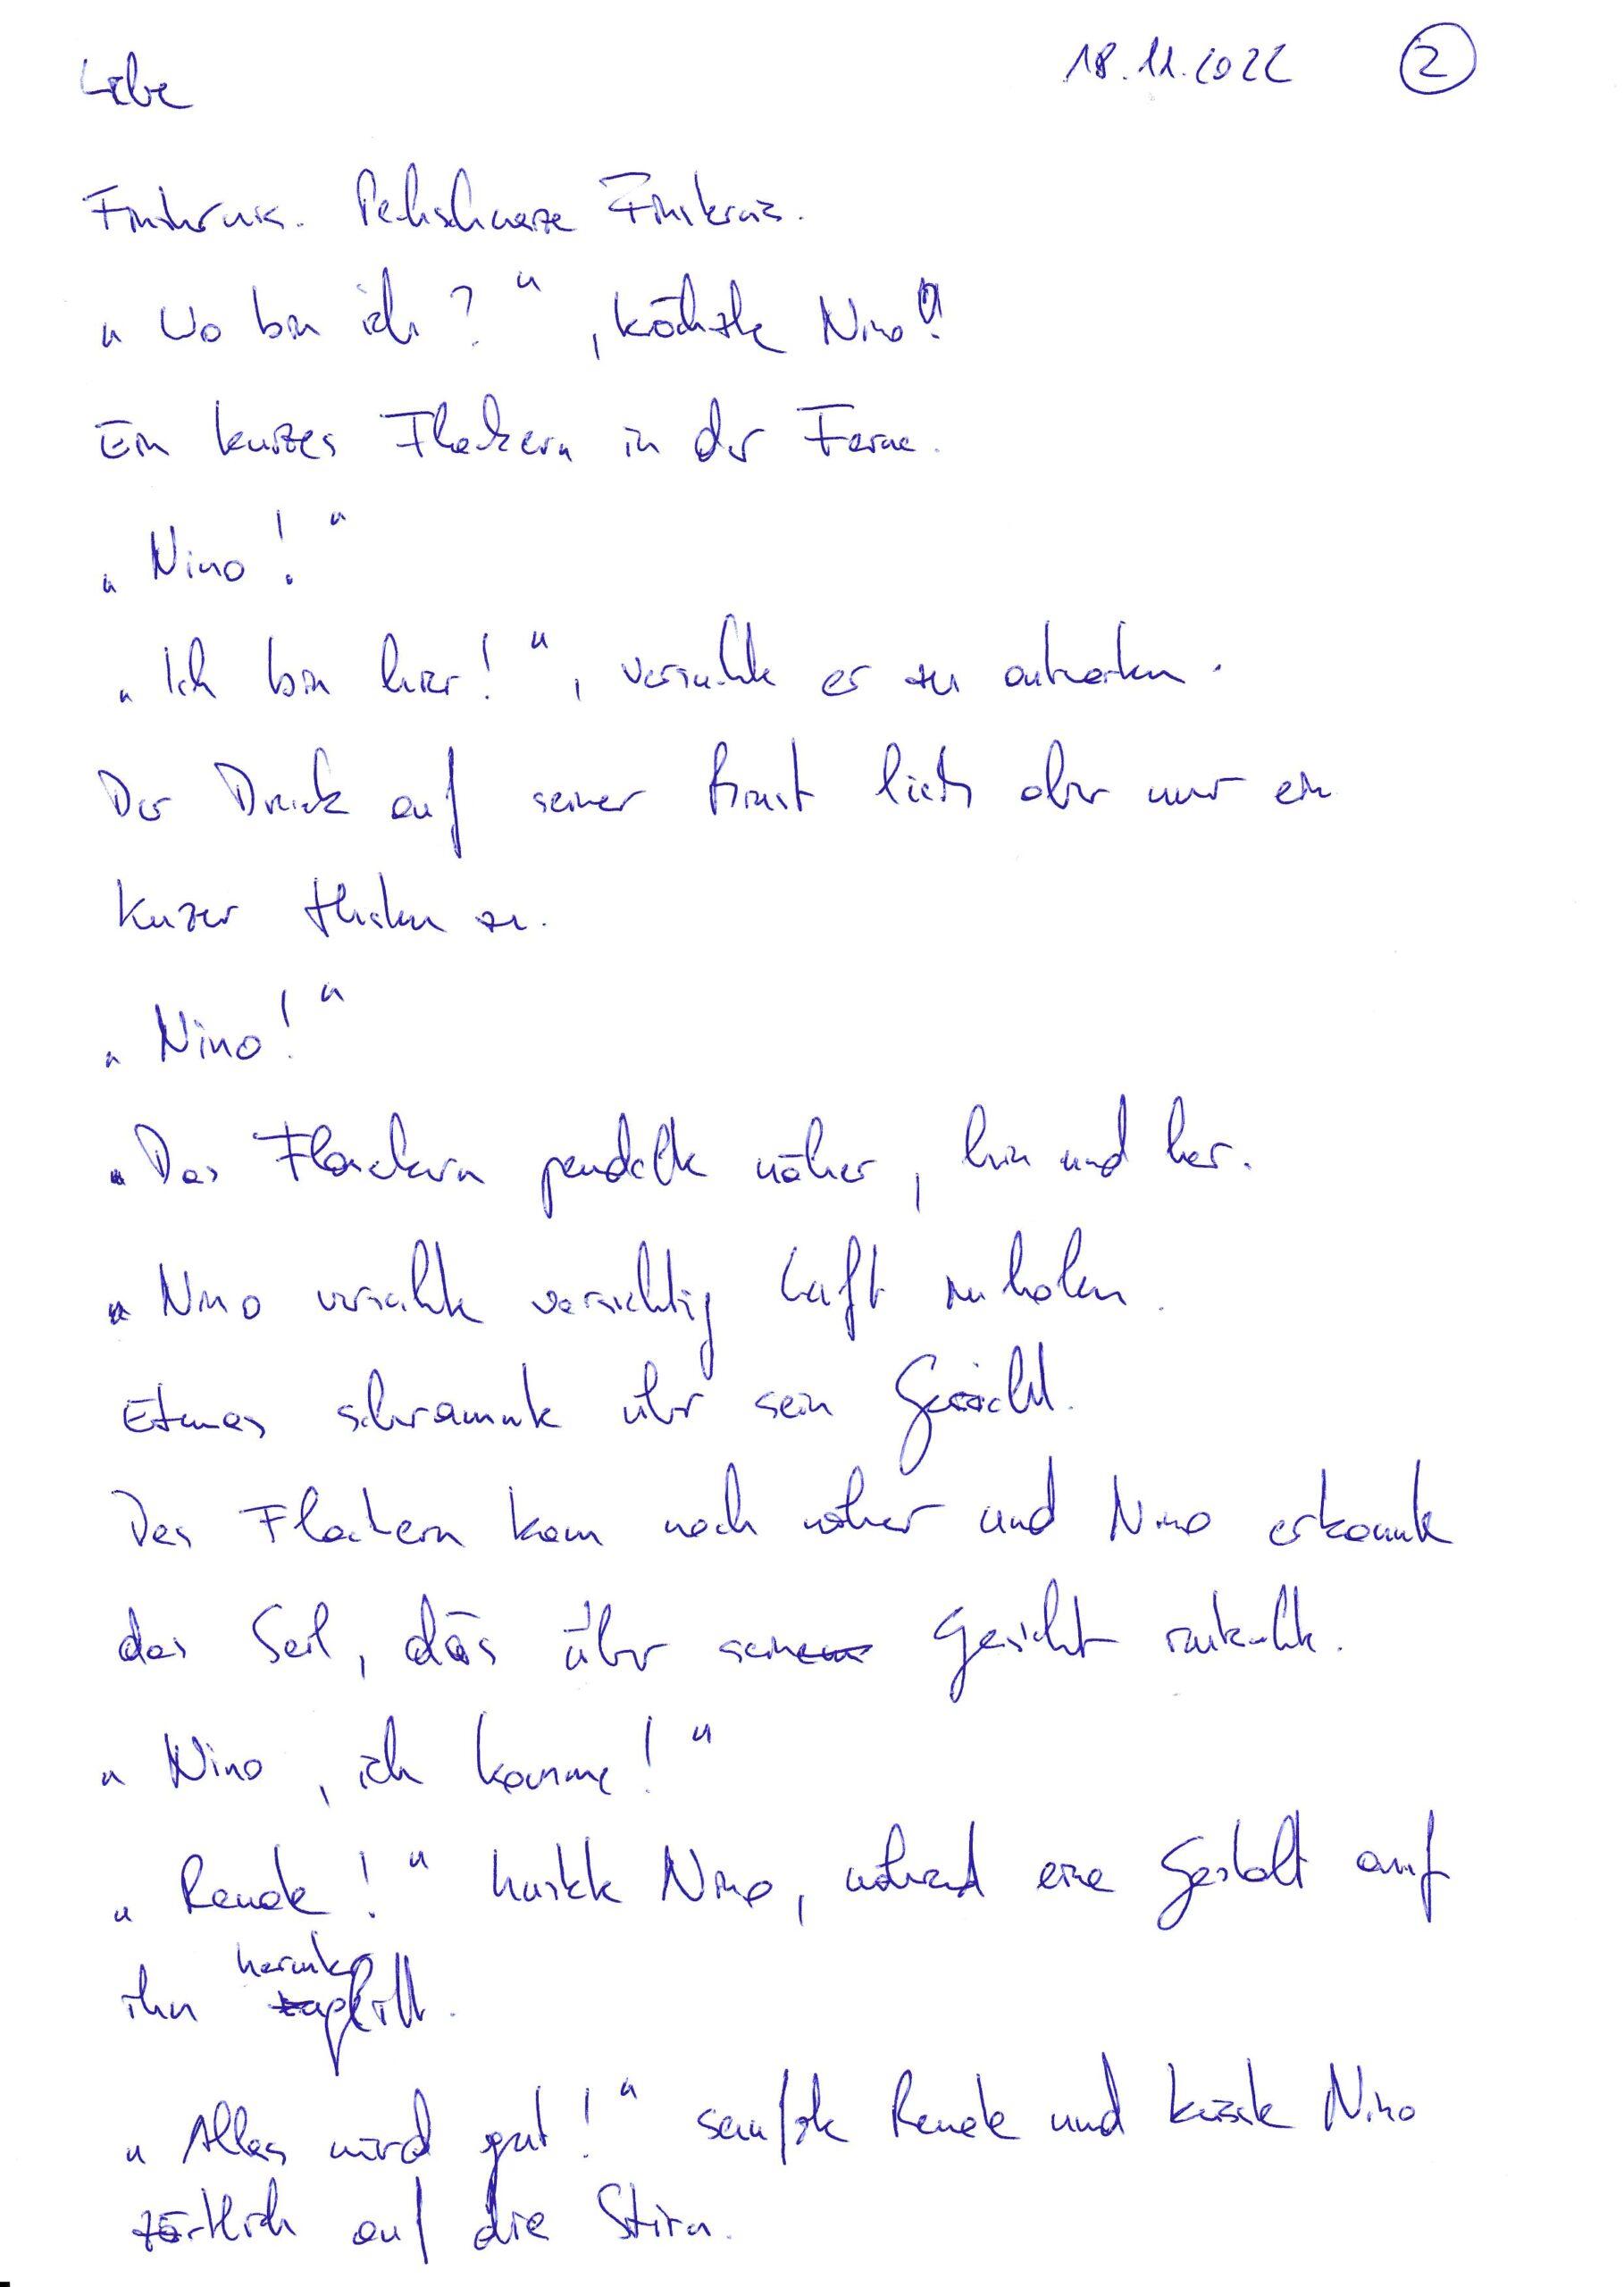 Liebe 18.11.2022 2
Finsternis. Pechschwarze Finsternis.
„Wo bin ich?“, krächzte Nino.
Ein kurzes Flackern in der Ferne.
„Nino!“
„Ich bin hier!“, versuchte er zu antworten.
Der Druck auf seiner Brust ließ aber nur ein
kurzer Husten zu.
„Nino!“
Das Flackern pendelte näher, hin und her.
Nino versuchte vorsichtig Luft zu holen.
Etwas schrammte über sein Gesicht.
Das Flackern kam noch näher und Nino erkannte
das Seil, das über sein Gesicht ruckelte.
„Nino, ich komme!“
„Renate!“ hustete Nino, während eine Gestalt auf
ihn herunter glitt.
„Alles wird gut!“ seufzte Renate und küsste Nino
zärtlich auf die Stirn.